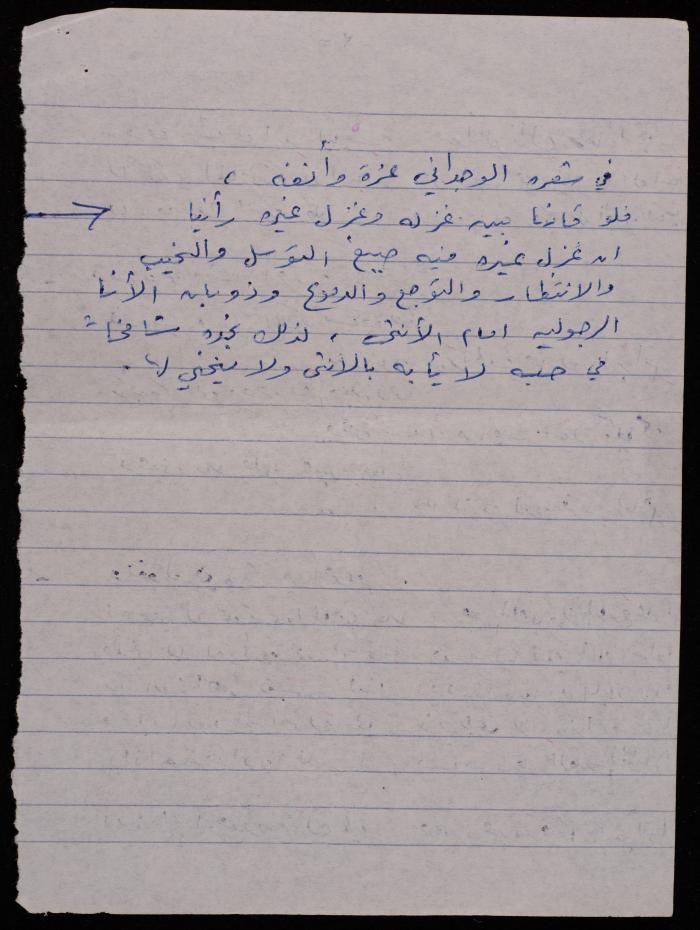 في شعره الوجداني عزة وأنفه ،
فلو قارنا بين غزله وغزل غيره رأينا
ان غزل غيره فيه صيغ التوسل والنحيب
والانتظار والتوجع والدموع وذوبان الأنا
الرجوليه امام الأنثى ، لذلك نجده شامخاً
في حبه لا يأبه بالانثى ولا ينحني لها .